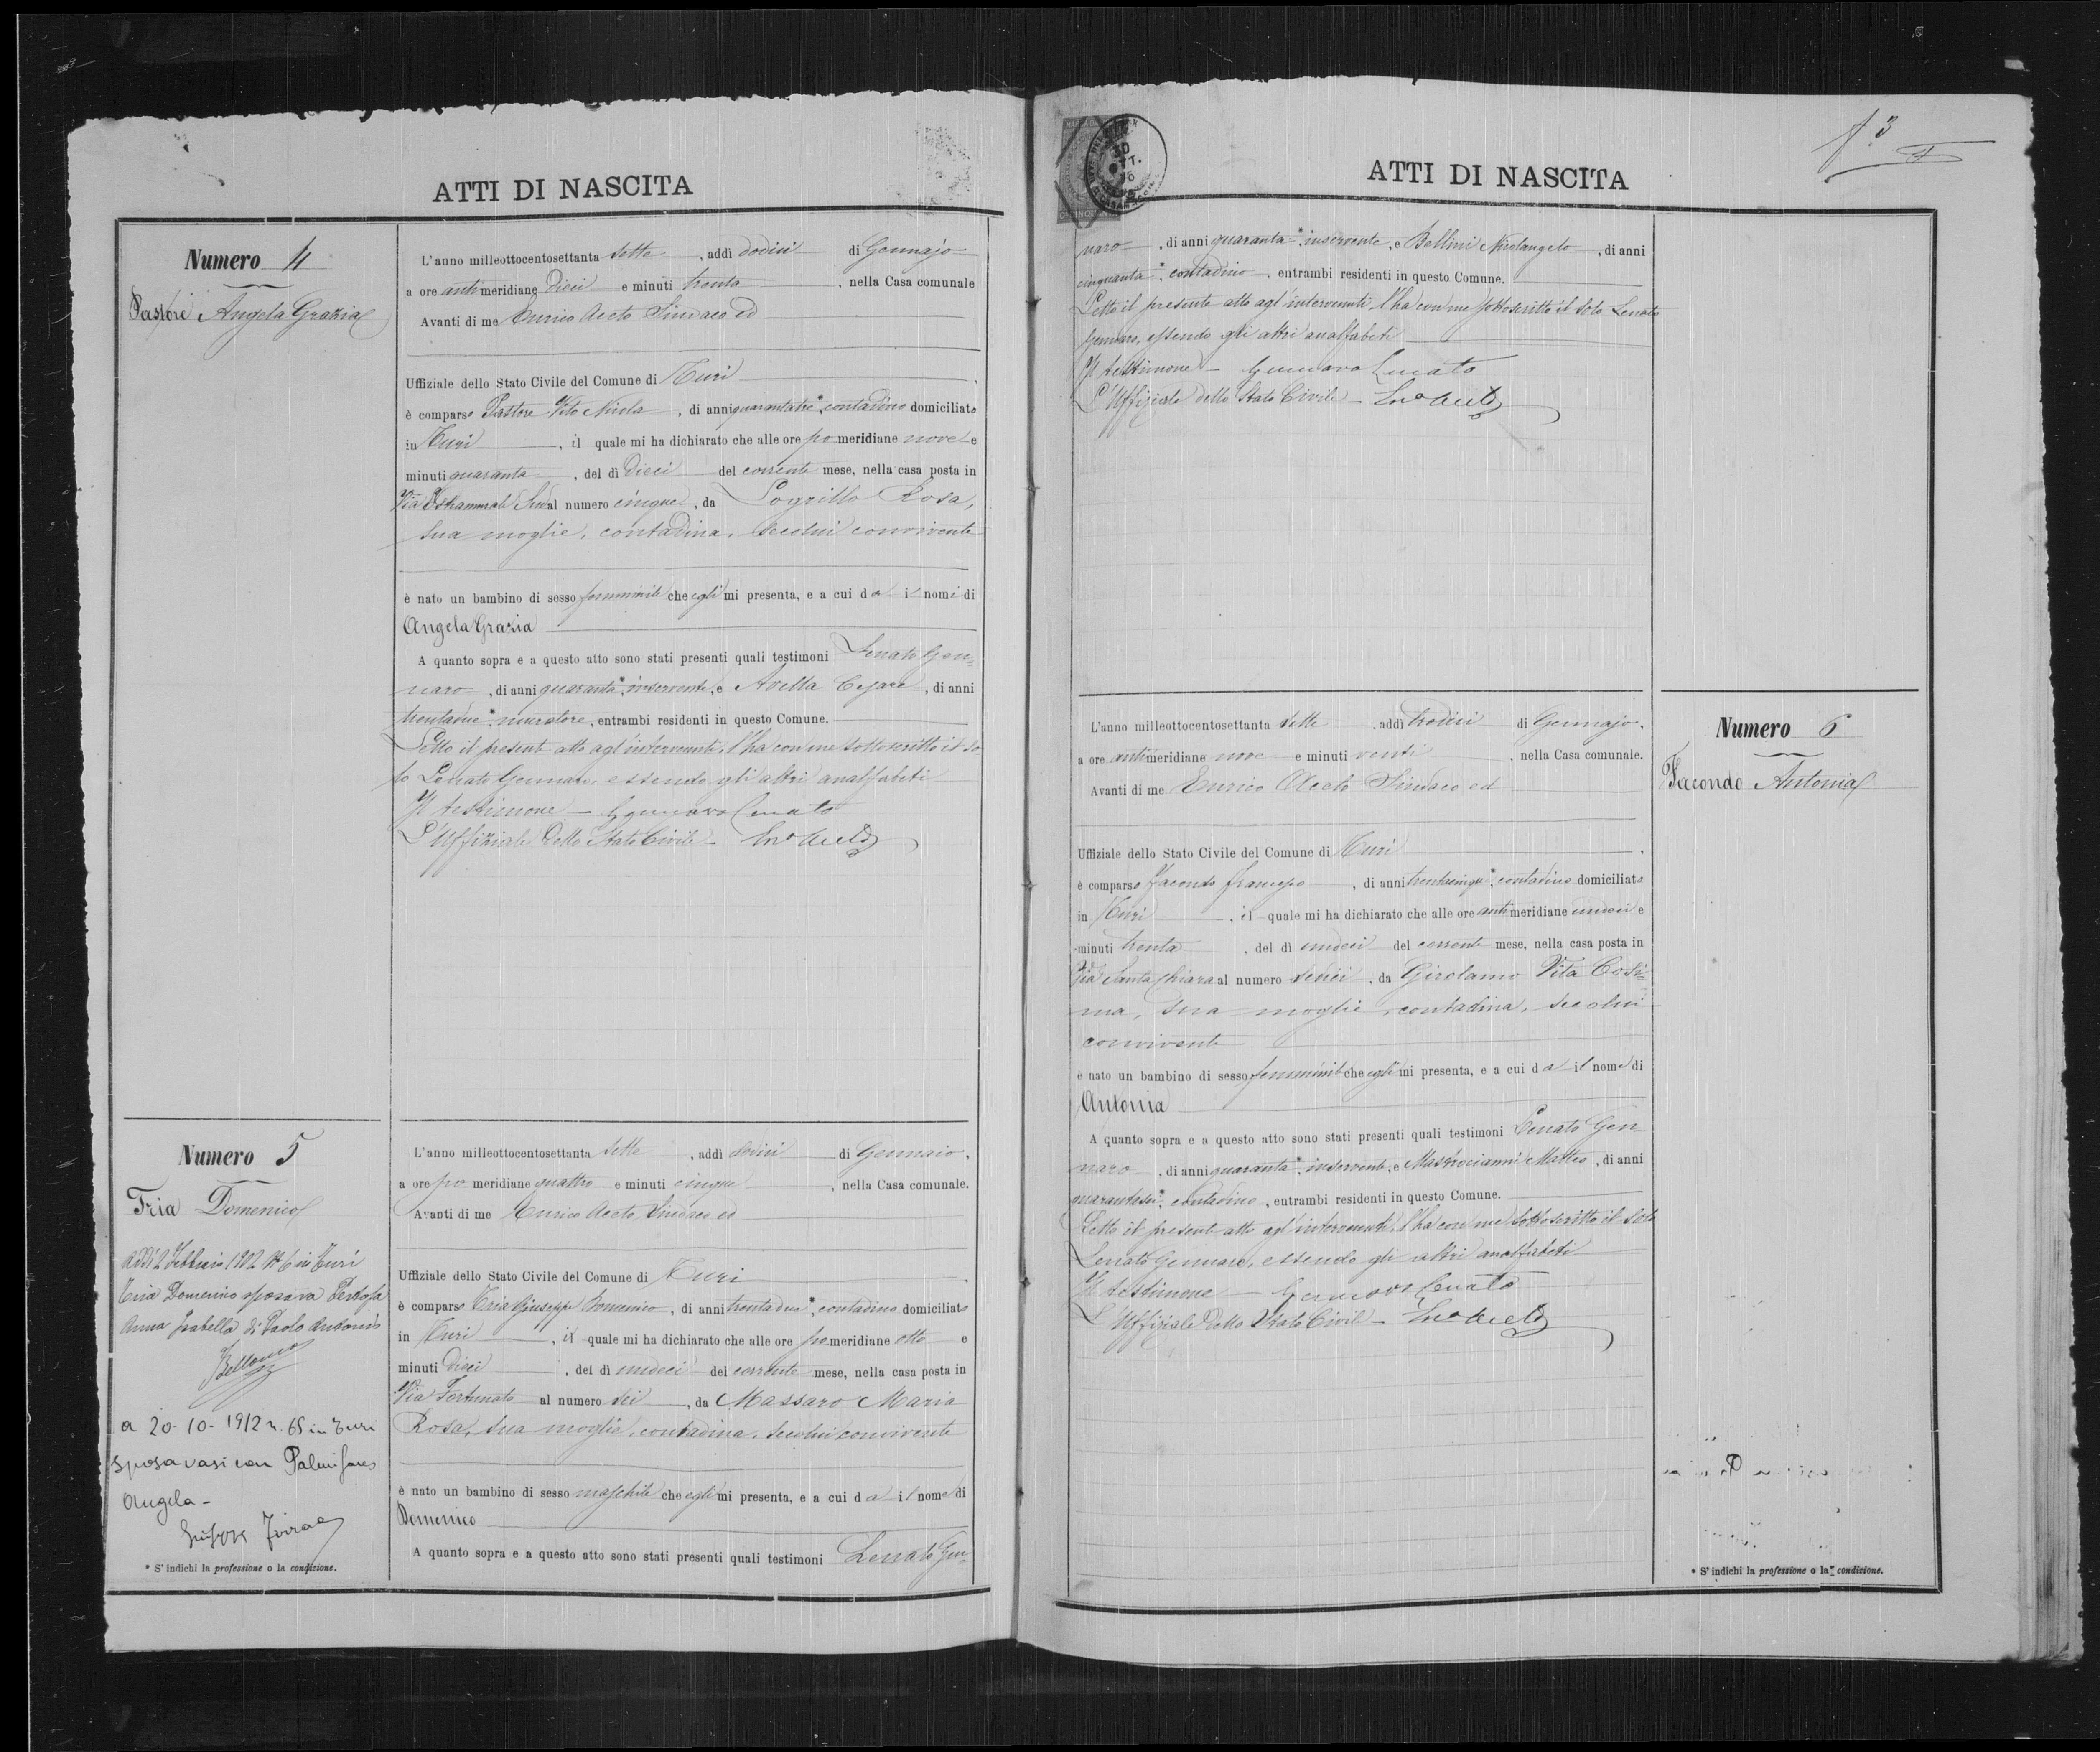 ATTI DI NASCITA
Numero 4
Pastore Angela Grazia
L'anno milleottocentosettanta sette, addì dodici di Gennajo
a ore antimeridiane dieci e minuti trenta, nella Casa comunale
Avanti di me Enrico Aceto Sindaco ed
Uffiziale dello Stato Civile del Comune di Turi.
è comparso Pastore Vito Nicola, di anni quarantatre*, contadino domiciliato
in Turi, il quale mi ha dichiarato che alle ore pomeridiane nove e
minuti quaranta, del dì dieci del corrente mese, nella casa posta in
Via al numero cinque, da Logrillo Rosa,
sua moglie, contadina, secolui convivente
è nato un bambino di sesso femminile che egli mi presenta, e a cui dà i nomi di
Angela Grazia
A quanto sopra e a questo atto sono stati presenti quali testimoni Lenato Gen-
naro, di anni quaranta*, inserviente, e Avella Cesare, di anni
trentadue*, muratore, entrambi residenti in questo Comune.
Letto il presente atto agl'intervenuti, l'ha con me sottoscritto il so-
lo Lenato Gennaro, essendo gli altri analfabeti
Il testimone - Gennaro Lenato
L'Uffiziale dello Stato Civile - Enco Aceto
Numero 5
Tria Domenico
Addì 2 Febbraio 1902 N. 6 in Turi
Tria Domenico sposava Pertosa
Anna Isabella di Paolo Antonio
a 20-10-1912 n. 65 in Turi
sposavasi con
Angela -
Giuseppe
* S'indichi la professione o la condizione.
L'anno milleottocentosettanta sette, addì dodici di Gennaio,
a ore pomeridiane quattro e minuti cinque, nella Casa comunale.
Avanti di me Enrico Aceto Sindaco ed
Uffiziale dello Stato Civile del Comune di Turi.
è comparso Tria Giuseppe Domenico, di anni trentadue*, contadino domiciliato
in Turi, il quale mi ha dichiarato che alle ore pomeridiane otto e
minuti dieci, del dì undeci del corrente mese, nella casa posta in
Via Fortunato al numero sei, da Massaro Maria
Rosa, sua moglie, contadina, secolui convivente
è nato un bambino di sesso maschile che egli mi presenta, e a cui dà il nome di
Domenico
A quanto sopra e a questo atto sono stati presenti quali testimoni Lenato Gen-
ATTI DI NASCITA
f.° 3
naro, di anni quaranta*, inserviente, e Bellini Nicolangelo, di anni
cinquanta*, contadino, entrambi residenti in questo Comune.
Letto il presente atto agl'intervenuti, l'ha con me sottoscritto il solo Lenato
Gennaro, essendo gli altri analfabeti
Il testimone - Gennaro Lenato
L'Uffiziale dello Stato Civile - Enco Aceto
Numero 6
Iacondo Antonia
L'anno milleottocentosettanta sette, addì tredici di Gennajo,
a ore antimeridiane nove e minuti venti, nella Casa comunale.
Avanti di me Enrico Aceto Sindaco ed
Uffiziale dello Stato Civile del Comune di Turi.
è comparso Iacondo Francesco, di anni trentacinque*, contadino domiciliato
in Turi, il quale mi ha dichiarato che alle ore antimeridiane undeci e
minuti trenta, del dì undeci del corrente mese, nella casa posta in
Via Santa Chiara al numero sedici, da Girolamo Vita Cosi-
ma, sua moglie, contadina, secolui
convivente
è nato un bambino di sesso femminile che egli mi presenta, e a cui dà il nome di
Antonia
A quanto sopra e a questo atto sono stati presenti quali testimoni Lenato Gen
naro, di anni quaranta*, inserviente, e Mastrocianni Matteo, di anni
quarantasei*, contadino, entrambi residenti in questo Comune.
Letto il presente atto agl'intervenuti, l'ha con me sottoscritto il solo
Lenato Gennaro, essendo gli altri analfabeti
Il testimone - Gennaro Lenato
L'Uffiziale dello Stato Civile - Enco Aceto
* S'indichi la professione o la condizione.